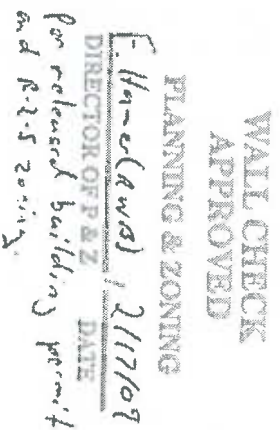 WALL CHECK
APPROVED
PLANNING & ZONING
2/17/09
DIRECTOR OF P & Z DATE
Per released building permit
and R-2.5 zoning.